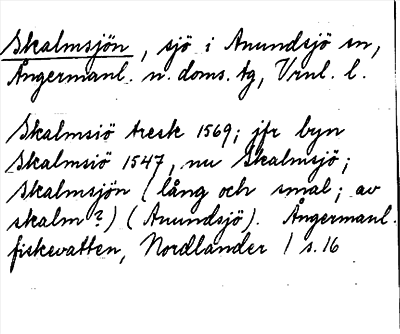 Skalmsjön, sjö i Anundsjö sn,
Ångermanl. n. doms. tg, Vrnl. l.
Skalmsiö tresk 1569; jfr byn
Skalmsiö 1547, nu Skalmsjö;
Skalmsjön (lång och smal; av
skalm?) (Anundsjö). Ångermanl.
fiskevatten, Nordlander 1 s. 16